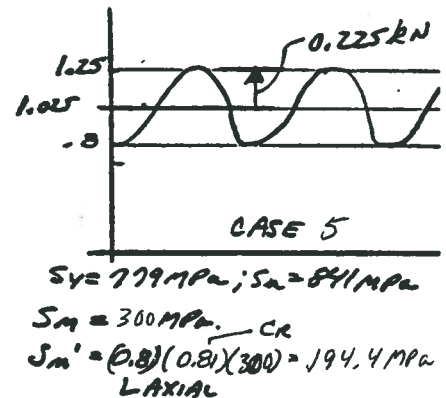 0.225kN
1.25
1.025
.8
CASE 5
Sy=779MPa; Su=841MPa
Sm = 300MPa.
CR
Sm' = (0.8)(0.81)(300) = 194.4 MPa
LAXIAL